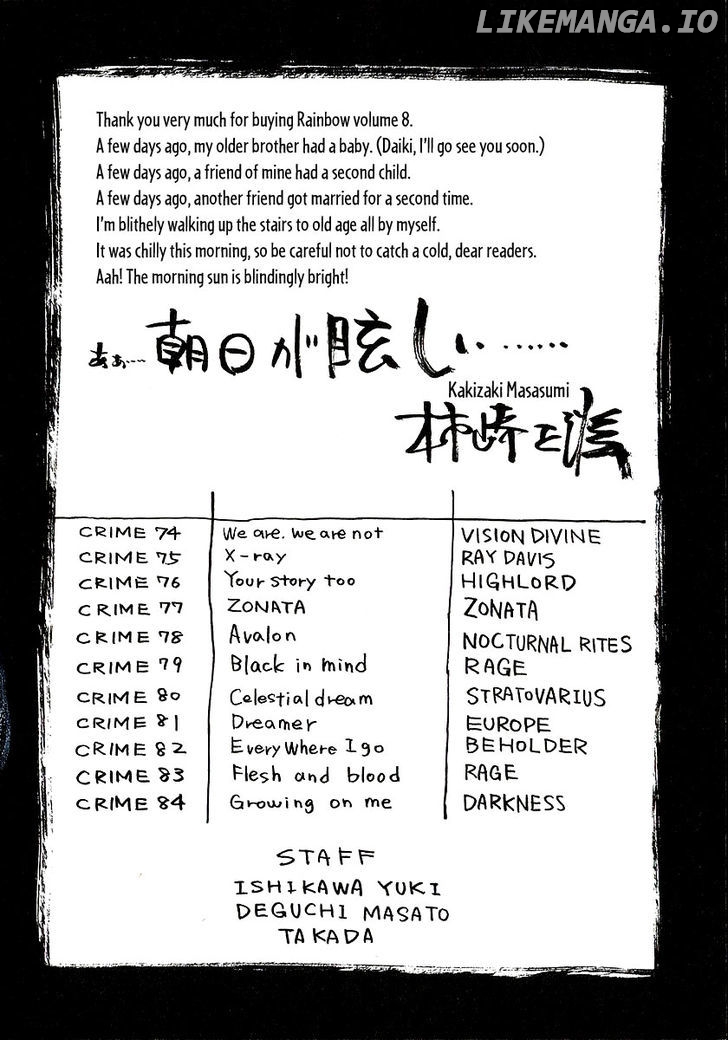 LIKEMANGA.IO
Thank you very much for buying Rainbow volume 8.
A few days ago, my older brother had a baby. (Daiki, I'll go see you soon.)
A few days ago, a friend of mine had a second child.
A few days ago, another friend got married for a second time.
I'm blithely walking up the stairs to old age all by myself.
It was chilly this morning, so be careful not to catch a cold, dear readers.
Aah! The morning sun is blindingly bright!
あぁ…朝日が眩しい……
Kakizaki Masasumi
柿崎正澄
CRIME 74 We are. we are not VISION DIVINE
CRIME 75 X-ray RAY DAVIS
CRIME 76 Your story too HIGHLORD
CRIME 77 ZONATA ZONATA
CRIME 78 Avalon NOCTURNAL RITES
CRIME 79 Black in mind RAGE
CRIME 80 Celestial dream STRATOVARIUS
CRIME 81 Dreamer EUROPE
CRIME 82 Every Where I go BEHOLDER
CRIME 83 Flesh and blood RAGE
CRIME 84 Growing on me DARKNESS
STAFF
ISHIKAWA YUKI
DEGUCHI MASATO
TAKADA